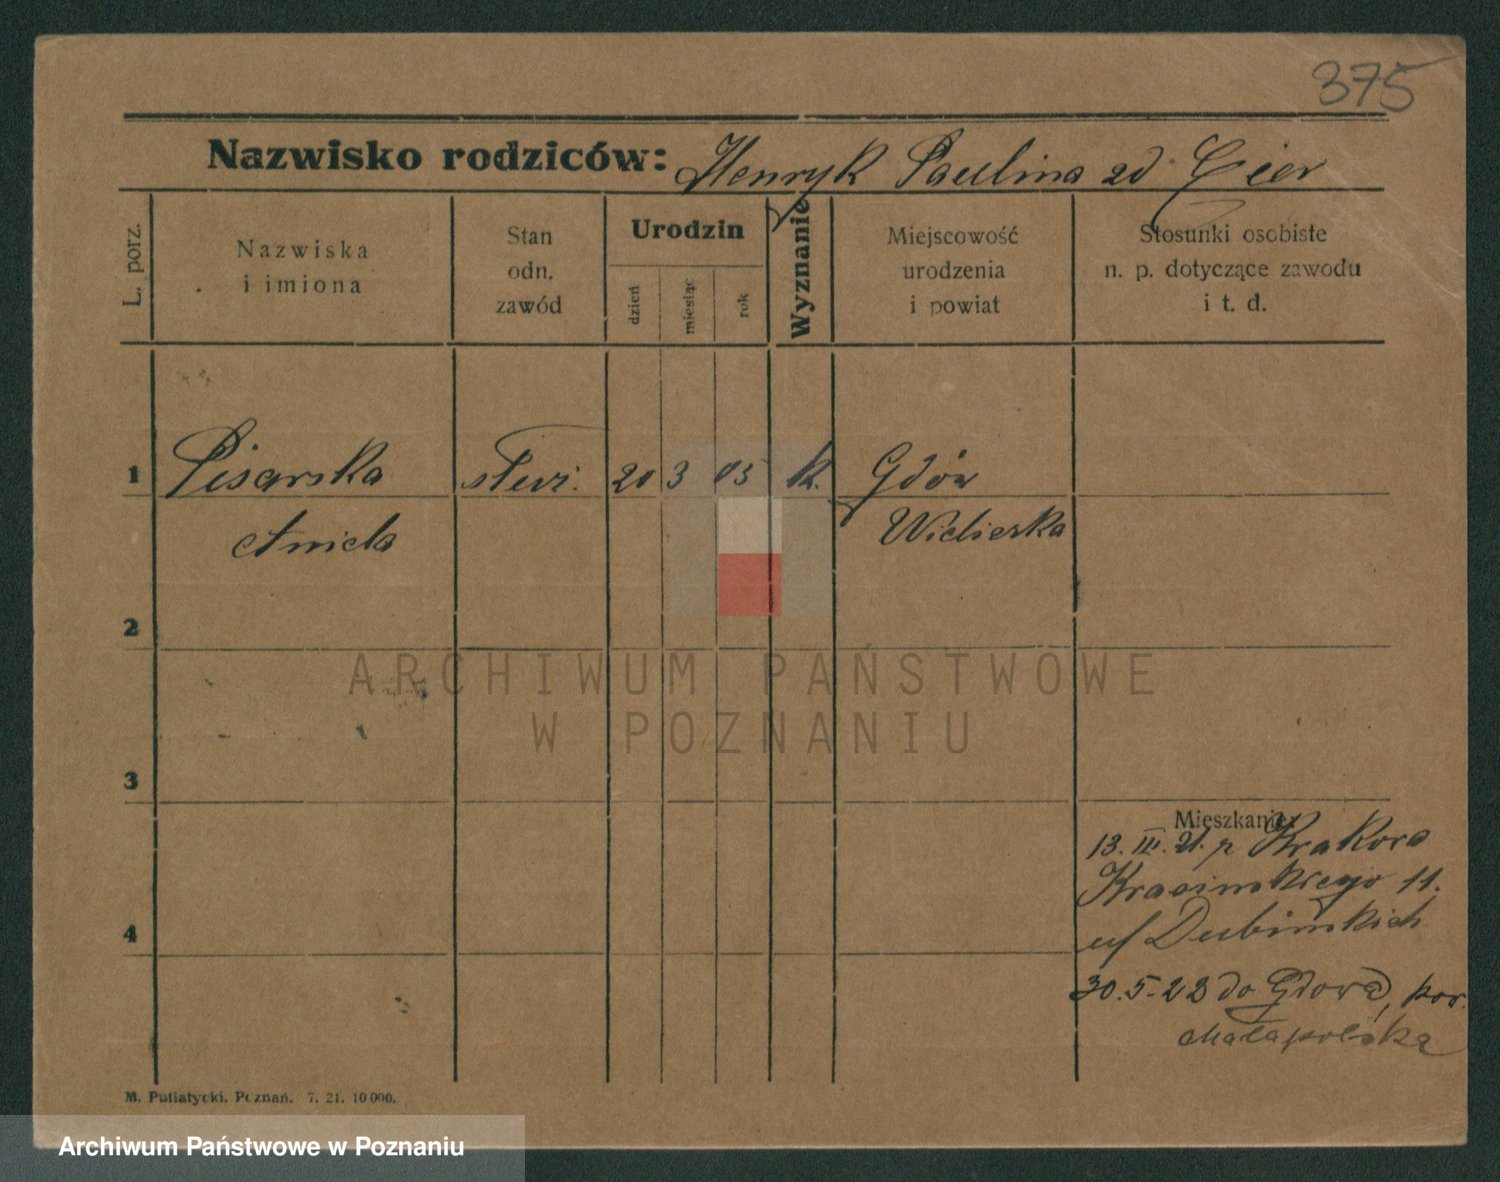 375
Nazwisko rodziców: Henryk Paulina zd Cier
L. porz.
Nazwiska i imiona
Stan odn. zawód
Urodzin
dzień
miesiąc
rok
Wyznanie
Miejscowość urodzenia i powiat
Stosunki osobiste n. p. dotyczące zawodu i t. d.
1 Pisarska 20 3 05 k. Gdów
Aniela Wieliczka
2
3
Mieszkanie:
13. III. 21. z Krakowa
Krasińskiego 11.
u/ Dubińskich
4
30.5-23 do Gdowa, pow.
Małapolska
M. Putiatycki. Poznań. 7. 21. 10 000.
ARCHIWUM PAŃSTWOWE
W POZNANIU
Archiwum Państwowe w Poznaniu